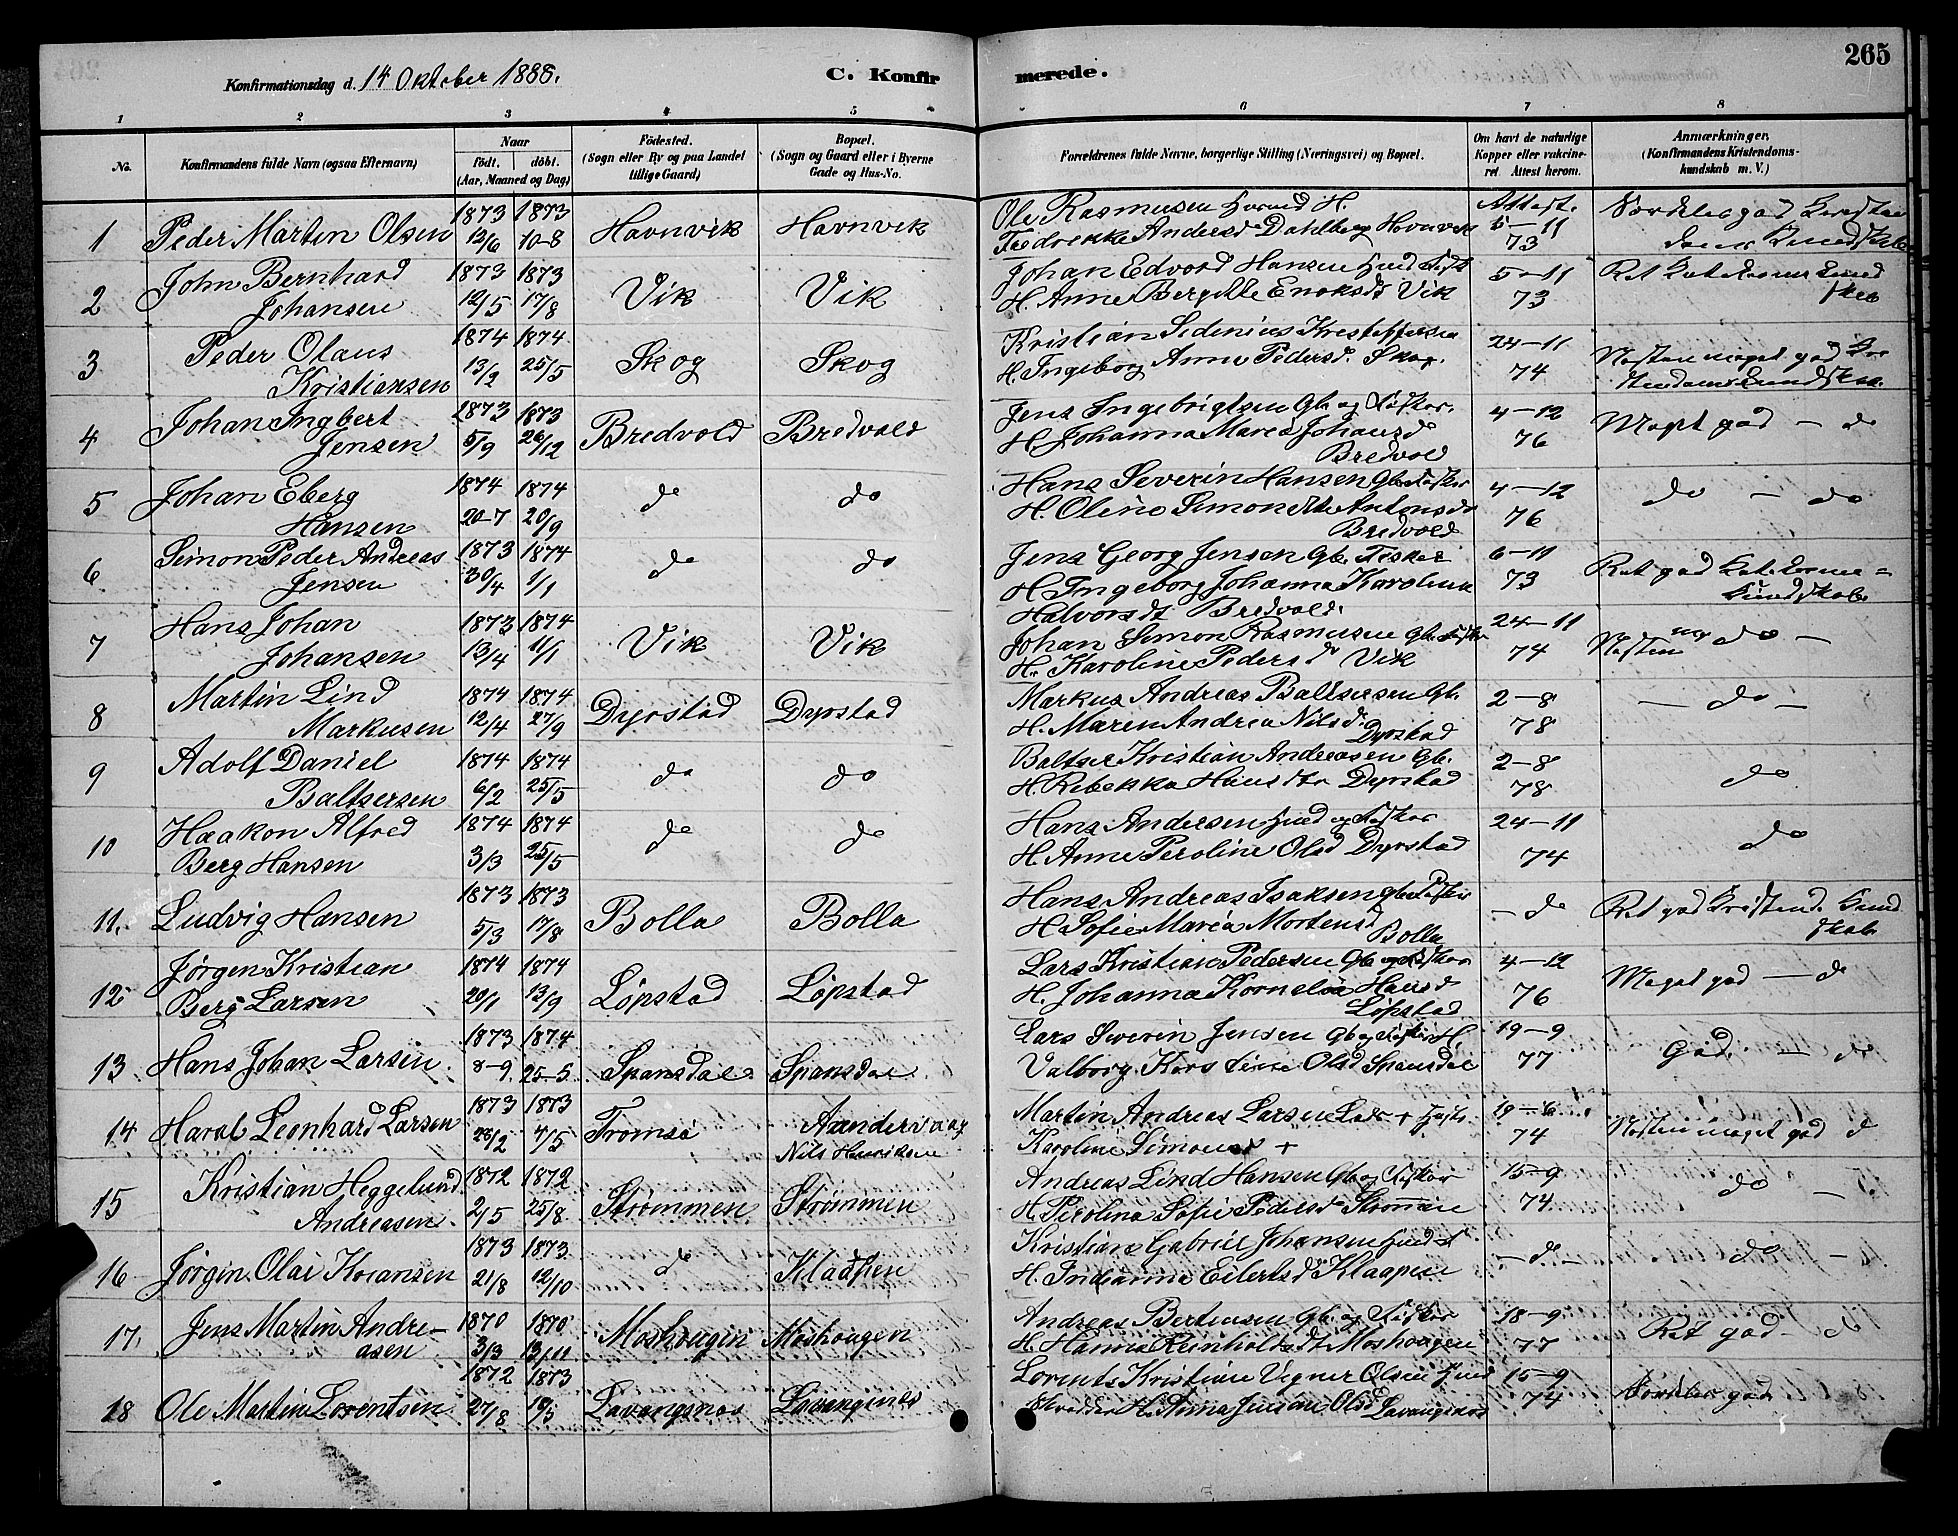 265
Konfirmationsdag d. 14 Oktober 1888.
C. Konfirmerede.
1 2 3 4 5 6 7 8
No.
Konfirmandens fulde Navn (ogsaa Efternavn)
Naar
födt. döbt.
(Aar, Maaned og Dag)
Födested.
(Sogn eller By og paa Landet
tillige Gaard)
Bopæl.
(Sogn og Gaard eller i Byerne
Gade og Hus-No.
Forældrenes fulde Navne, borgerlige Stilling (Næringsvei) og Bopæl.
Om havt de naturlige
Kopper eller vakcine-
ret. Attest herom.
Anmærkninger.
(Konfirmandens Kristendoms-
kundskab m. V.)
1 Peder Martin Olsen 1873 12/6 1873 10-8 Havnvik Havnvik
Ole Rasmusen H.
Fredrekke Andersd Dahlberg Havnvik
Attest. 5-11 73
Særdeles god
2 John Bernhard
Johansen 1873 12/5 1873 17/8 Vik Vik
Johan Edvard Hansen
H. Anne Bergitte Enoksdt Vik
5-11 73
3 Peder Olaus
Kristiansen 1874 13/2 1874 25/5 Skog Skog
Kristian Sidenius Kristoffersen
H. Ingeborg Anne Pedersd. Skog.
24-11 74
Næsten meget god
4 Johan Ingbert
Jensen 1873 5/9 1873 26/12 Bredvold Bredvold
Jens Ingebrigtsen Gb. og Fisker.
H. Johanna Maria Johansd
Bredvold
4-12 76
Meget god - do
5 Johan Eberg
Hansen 1874 20-7 1874 20/9 do do
Hans Severin Hansen Gb. Fisker
H. Oline Simon Antonsd
Bredvold
4-12 76
do - do
6 Simon Peder Andreas
Jensen 1873 30/4 1874 1/1 do do
Jens Georg Jensen Gb. Fisker
H. Ingeborg Johanna Karoline
Halvorsdt Bredvold.
6-11 73
Ret god
7 Hans Johan
Johansen 1873 13/4 1874 11/1 Vik Vik
Johan Simon Rasmusen Gb. Fisker
H. Karoline Pedersd Vik
24-11 74
Næsten do -
8 Martin Lind
Markusen 1874 12/4 1874 27/9 Dyrstad Dyrstad
Markus Andreas Baltsersen Gb.
H. Maren Andrea Nilsd.
Dyrstad
2-8 78
- do -
9 Adolf Daniel
Baltsersen 1874 6/2 1874 25/5 do do
Baltser Kristian Andreasen Gb.
H. Rebekka Hansdtr Dyrstad
2-8 78
do
10 Haakon Alfred
Berg Hansen 1874 3/3 1874 25/5 do do
Hans Andersen og Fisker
H. Anne Peroline Olsd Dyrstad
24-11 74
do
11. Ludvig Hansen 1873 5/3 1873 17/8 Bolla Bolla
Hans Andreas Isaksen Gb. Fisker
H. Sofie Maria Mortensd
Bolla
- do
Ret god Kristend. Kund
skab
12 Jørgen Kristian
Berg Larsen 1874 20/1 1874 13/9 Løpstad Løpstad
Lars Kristian Pedersen Gb. og Fisker
H. Johanna Kornelia Hansd
Løpstad
4-12 76
Meget god - do
13 Hans Johan Larsen 1873 8-9 1874 25-5 Spansdal Spansdal
Lars Severin Jensen Gb. og Fisker H.
Valborg Kirstine Olsd Spansdal
19-9 77
God. - do
14 Haral Leonhard Larsen 1873 28/2 1873 4/5 Tromsø Aandervaag
Nils Henriksen
Martin Andreas Larsen
Karoline Simonsd +
19-6 74
Næsten meget god d
15 Kristian Heggelund
Andreasen 1872 2/5 1872 25/8 Strømmen Strømmen
Andreas Lind Hansen Gb. og Fisker
H. Perolina Sofie Pedersd Strømmen
15-9 74
do -
16 Jørgen Olai 1873 21/8 1873 12/10 do
Kristian Gabriel Johansen
H. Eilertsd
- do - do -
17. Jens Martin Andre-
asen 1870 3/3 1870 13/11 Moshougen Moshougen
Andreas Berteusen Gb. og Fisker
H. Hanna Reinholdsdt Moshougen
18-9 77
Ret god - do
18 Ole Martin Lorentsen 1872 27/8 1873 19/5 Lavangsnæs Lavangsnæs
Lorents Kristian Vegner Olsen
H. Anna Jensine Olsd Lavangsnæs
15-9 74
Særdeles god